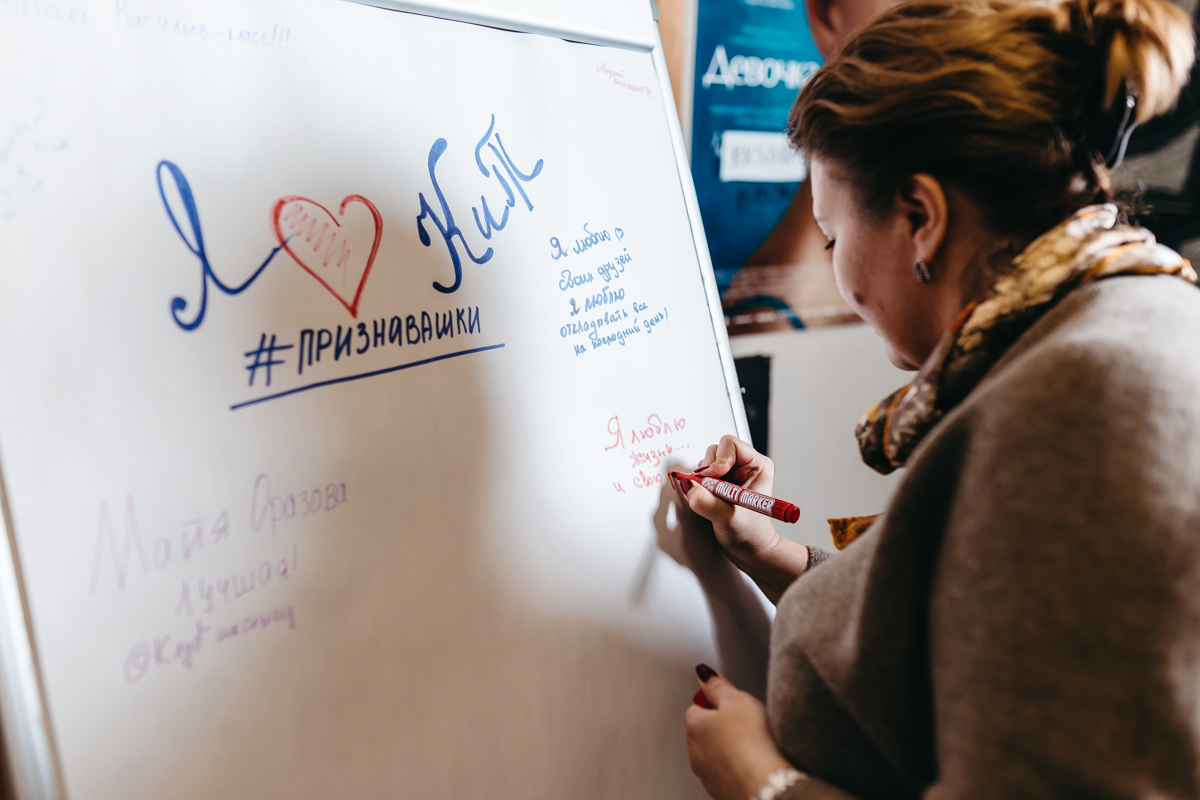 Васильев - класс!!!
Я КиТ
#ПРИЗНАВАШКИ
Я люблю
своих друзей
Я люблю
откладывать все
на последний день!
Я люблю
жизнь....
и свою
Майя Оразова
лучшая!
@Клуб
Девочка
MULTI MARKER